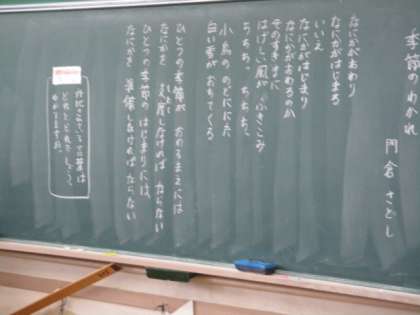 季節のわかれ
門倉 さとし
なにかがおわり
なにかがはじまる
いいえ
なにかがはじまり
なにかがおわるのか
そのすきまに
はげしい風が ふきこみ
ちちち。ちちち。
小鳥の のどににた
白い雲が おちてくる
ひとつの季節が おわるまえには
なにかを 支度しなければ ならない
ひとつの季節の はじまりには、
なにかを 準備しなければ ならない